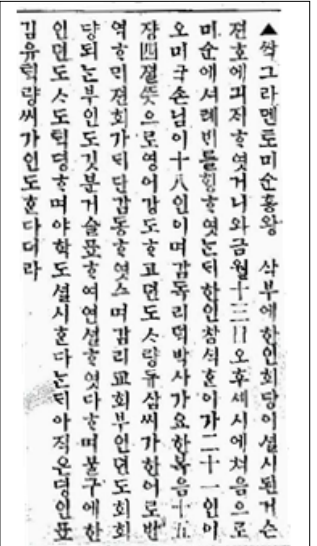 ▲싹그라멘토미순황왕 삭부에한인회당이셜시된거슨
젼호에긔저ᄒᆞ엿거니와금월十三日오후세시에처음으로
미순에셔례비를힝ᄒᆞ엿ᄂᆞᆫ되한인참셕ᄒᆞᆫ이가二十一인이
오미국손님이十八인이며감독리덕박사가요한복음十五
쟝四졀뜻으로영어강도ᄒᆞ고뎐도ᄉᆞ량듀삼씨가한어로번
역ᄒᆞ미젼회가되단감동ᄒᆞ엿스며감리교회부인뎐도회회
당되ᄂᆞᆫ부인도깃분거슬표ᄒᆞ여연셜ᄒᆞ엿다ᄒᆞ며불구에한
인뎐도ᄉᆞ도턱뎡ᄒᆞ며야학도셜시ᄒᆞᆫ다ᄂᆞᆫ되아직은뎡인표
김유턱량씨가인도ᄒᆞᆫ다더라